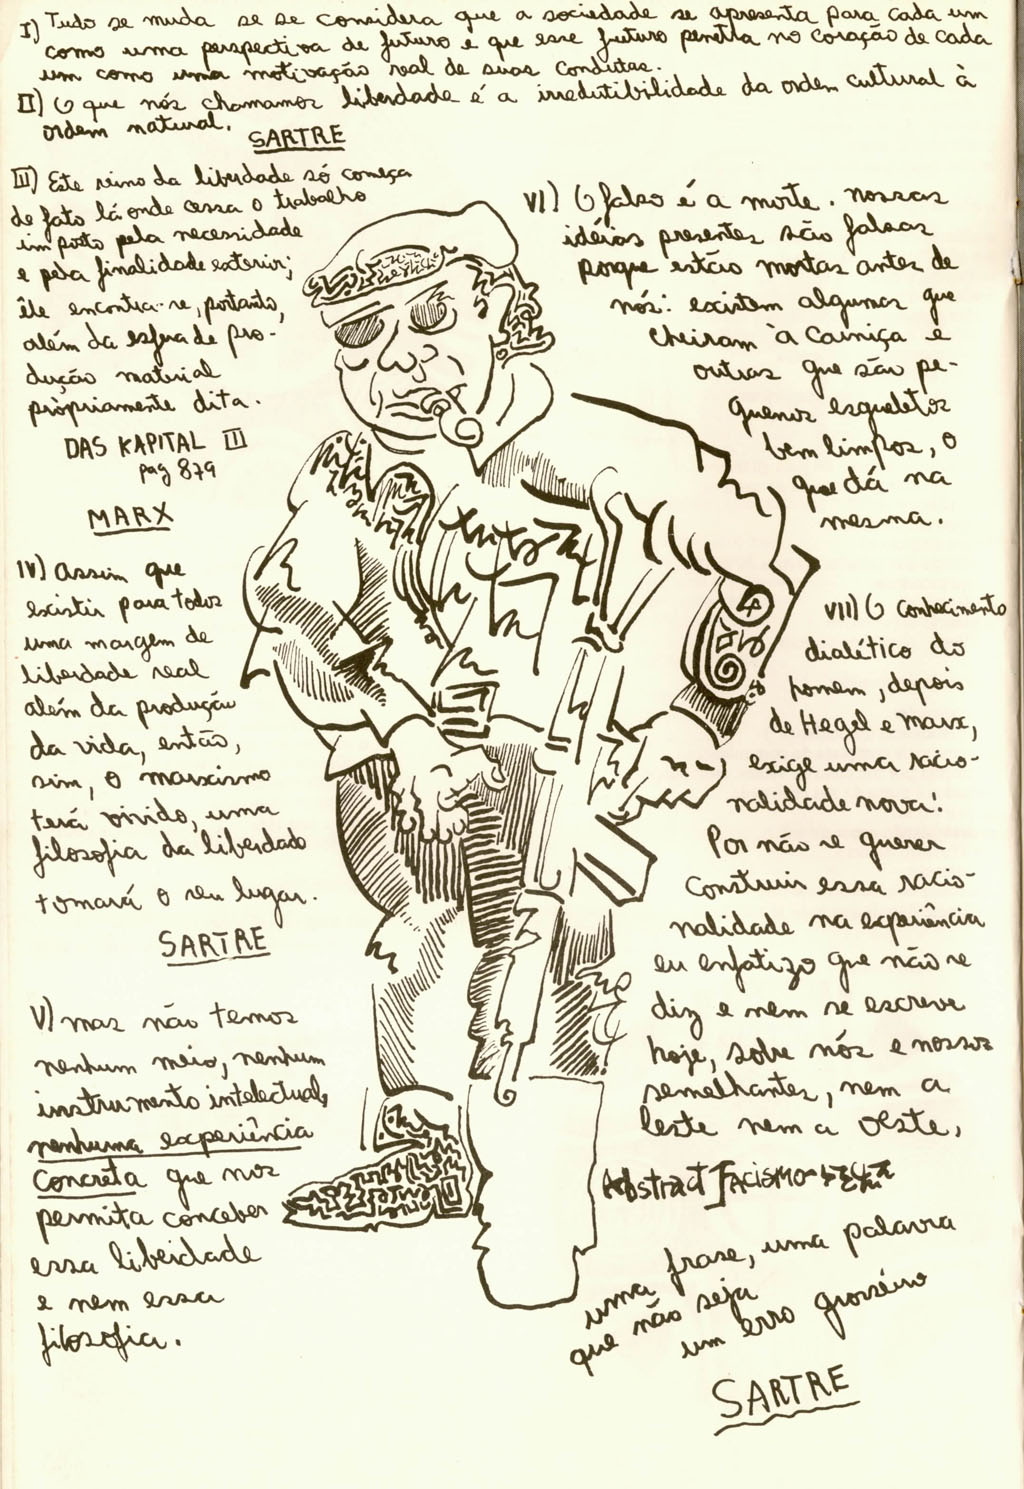 I) Tudo se muda se se considera que a sociedade se apresenta para cada um
como uma perspectiva de futuro e que esse futuro penetra no coração de cada
um como uma motivação real de suas condutas.
II) O que nós chamamos liberdade é a irredutibilidade da ordem cultural à
ordem natural.
SARTRE
III) Este reino da liberdade só começa
de fato lá onde cessa o trabalho
imposto pela necessidade
e pela finalidade exterior;
êle encontra-se, portanto,
além da esfera de pro-
dução material
pròpriamente dita.
DAS KAPITAL III
pag 879
MARX
IV) Assim que
existir para todos
uma margem de
liberdade real
além da produção
da vida, então,
sim, o marxismo
terá vivido, uma
filosofia da liberdade
tomará o seu lugar.
SARTRE
V) mas não temos
nenhum meio, nenhum
instrumento intelectual,
nenhuma experiência
concreta que nos
permita conceber
essa liberdade
e nem essa
filosofia.
VI) O falso é a morte. nossas
idéias presentes são falsas
porque estão mortas antes de
nós: existem algumas que
cheiram à carniça e
outras que são pe-
quenos esqueletos
bem limpos, o
que dá na
mesma.
VII) O conhecimento
dialético do
homem, depois
de Hegel e Marx,
exige uma racio-
nalidade nova!
Por não se querer
construir essa racio-
nalidade na experiência
eu enfatizo que não se
diz e nem se escreve
hoje, sobre nós e nossos
semelhantes, nem a
leste nem a oeste,
Abstract Facismo
uma frase, uma palavra
que não seja
um erro grosseiro
SARTRE